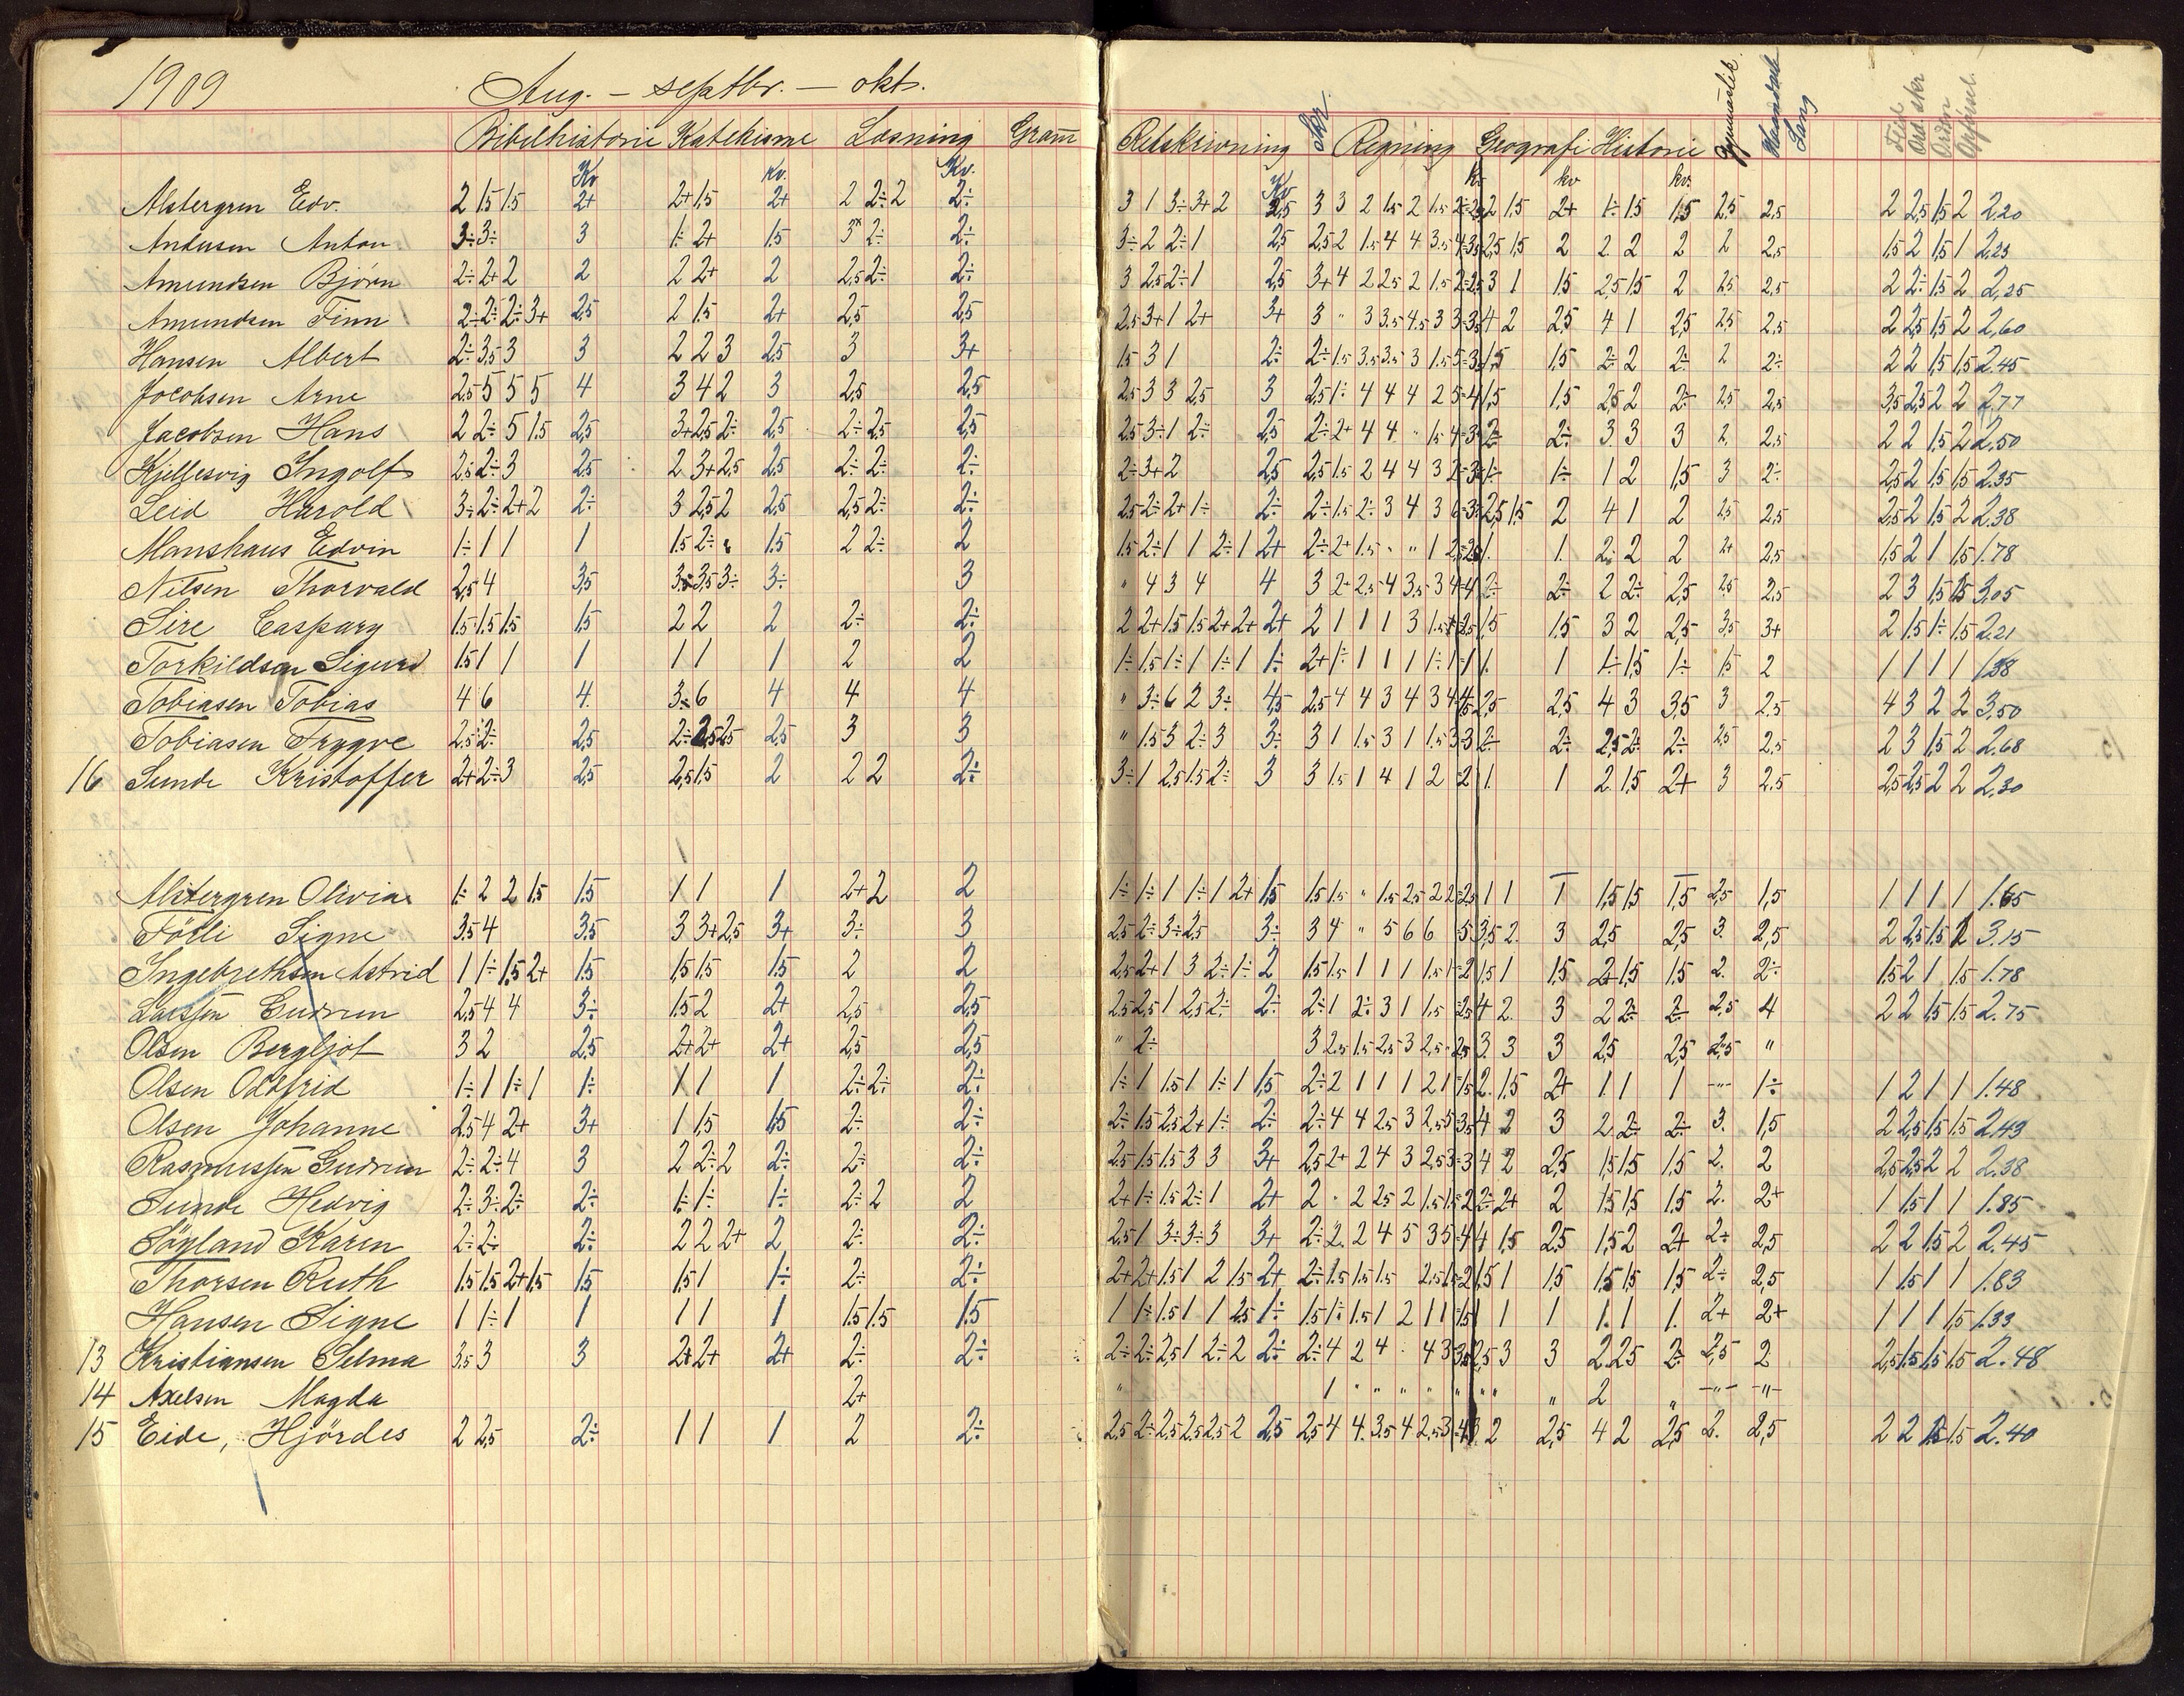 1909 Aug. - septbr. - okt.
Bibelhistorie Katekisme Læsning Gram Retskrivning Skr. Regning Geografi Historie Gymnastik Haandarb Sang Flid Ord. skr Orden Opførsel.
Kv kv. Kv. Kv kv kv kv.
Alstergren Edv. 2 1.5 1.5 2+ 2+ 1.5 2+ 2 2÷ 2 2÷ 3 1 3÷ 3+ 2 2,5 3 3 2 1.5 2 1.5 2 1.5 2+ 1÷ 1.5 1.5 2,5 2,5 2 2,5 1,5 2 2,20
Andersen Anton 3÷ 3÷ 3 1÷ 2+ 1.5 3* 2÷ 2÷ 3÷ 2 2÷ 1 2,5 2,5 2 1.5 4 4 3.5 2,5 1,5 2 2 2 2 2 2,5 1,5 2 1,5 1 2,23
Amundsen Bjørn 2÷ 2+ 2 2 2 2+ 2 2,5 2÷ 2÷ 3 2,5 2÷ 1 2,5 3+ 4 2 2,5 2 1.5 3 1 1.5 2,5 1,5 2 2,5 2,5 2 2÷ 1,5 2 2,25
Amundsen Finn 2÷ 2÷ 2÷ 3+ 2,5 2 1.5 2+ 2,5 2,5 2,5 3+ 1 2+ 3+ 3 " 3 3.5 4.5 3 4 2 2,5 4 1 2,5 2,5 2,5 2 2,5 1,5 2 2,60
Hansen Albert 2÷ 3,5 3 3 2 2 3 2,5 3 3+ 1.5 3 1 2÷ 2÷ 1.5 3.5 3.5 3 1.5 1,5 1,5 2÷ 2 2÷ 2 2÷ 2 2 1,5 1,5 2.45
Jacobsen Arne 2,5 5 5 5 4 3 4 2 3 2,5 2,5 2,5 3 3 2,5 3 2,5 1÷ 4 4 4 2 1,5 1.5 2,5 2 2÷ 2,5 2,5 3,5 2,5 2 2 2,77
Jacobsen Hans 2 2÷ 5 1.5 2,5 3+ 2,5 2÷ 2,5 2÷ 2,5 2,5 2,5 3÷ 1 2÷ 2,5 2÷ 2+ 4 4 " 1.5 2÷ 2÷ 3 3 3 2 2,5 2 2 1,5 2 2,50
Kjellesvig Ingolf 2,5 2÷ 3 2,5 2 3+ 2,5 2,5 2÷ 2÷ 2÷ 2÷ 3+ 2 2,5 2,5 1.5 2 4 4 3 1÷ 1÷ 1 2 1,5 3 2÷ 2,5 2 1,5 1,5 2.35
Leid Harold 3÷ 2÷ 2+ 2 2÷ 3 2,5 2 2,5 2,5 2÷ 2÷ 2,5 2÷ 2+ 1÷ 2÷ 2÷ 1.5 2÷ 3 4 3 2,5 1,5 2 4 1 2 2,5 2,5 2,5 2 1,5 2 2.38
Manshaus Edvin 1÷ 1 1 1 1.5 2÷ 1.5 2 2÷ 2 1.5 2÷ 1 1 2÷ 1 2+ 2÷ 2+ 1.5 " " 1 1. 1. 2÷ 2 2 2+ 2,5 1,5 2 1 1,5 1.78
Nilsen Thorvald 2,5 4 3,5 3÷ 3,5 3÷ 3÷ 3 " 4 3 4 4 3 2+ 2.5 4 3.5 3 2÷ 2÷ 2 2÷ 2,5 2,5 3,5 2 3 1,5 1,5 3,05
Sire Easpary 1.5 1.5 1.5 1.5 2 2 2 2÷ 2÷ 2 2+ 1.5 1.5 2+ 2+ 2+ 2 1 1 1 3 1.5 1,5 1.5 3 2 2,5 3,5 3+ 2 1,5 1÷ 1,5 2.21
Torkildsen Sigurd 1.5 1 1 1 1 1 1 2 2 1÷ 1.5 1÷ 1 1÷ 1 1÷ 2+ 1÷ 1 1 1 1÷ 1. 1 1÷ 1,5 1÷ 1,5 2 1 1 1 1 1.38
Tobiasen Tobias 4 6 4. 3÷ 6 4 4 4 " 3÷ 6 2 3÷ 4,5 2,5 4 4 3 4 3 2,5 2,5 4 3 3,5 3 2,5 4 3 2 2 3,50
Tobiasen Trygve 2.5 2÷ 2,5 2÷ 2,5 2,5 2,5 3 3 " 1.5 3 2÷ 3 3÷ 3 1 1.5 3 1 1.5 2÷ 2÷ 2,5 2÷ 2÷ 2,5 2,5 2 3 1,5 2 2.68
16 Sunde Kristoffer 2+ 2÷ 3 2,5 2,5 1.5 2 2 2 2÷ 3÷ 1 2,5 1.5 2÷ 3 3 1.5 1 4 1 2 1. 1 2. 1,5 2+ 3 2.5 2,5 2,5 2 2 2,30
Alstergren Olivia 1÷ 2 2 1.5 1.5 1 1 1 2+ 2 2 1÷ 1÷ 1 1÷ 1 2+ 1,5 1.5 1.5 " 1.5 2.5 2 1 1 1 1,5 1,5 1,5 2,5 1,5 1 1 1 1 1.65
Födli Signe 3.5 4 3.5 3 3+ 2,5 3+ 3÷ 3 2,5 2÷ 3÷ 2,5 3÷ 3 4 " 5 6 6 3,5 2. 3 2,5 2,5 3. 2,5 2 2,5 1,5 2 3.15
Ingebrethsen Astrid 1 1÷ 1.5 2+ 1.5 1.5 1.5 1.5 2 2 2,5 2+ 1 3 2÷ 1÷ 2 1.5 1.5 1 1 1 1.5 1,5 1 1,5 2+ 1,5 1.5 2. 2÷ 1,5 2 1 1,5 1.78
Larssen Gudrun 2,5 4 4 3÷ 1.5 2 2+ 2,5 2,5 2,5 2,5 1 2,5 2÷ 2÷ 2÷ 1 2÷ 3 1 1.5 4 2. 3 2 2÷ 2÷ 2,5 4 2 2 1,5 1.5 2.75
Olsen Bergljot 3 2 2,5 2+ 2+ 2+ 2,5 2,5 " 2÷ 3 2.5 1.5 2.5 3 2.5 3. 3 3 2,5 2,5 2,5 "
Olsen Oddfrid 1÷ 1 1÷ 1 1÷ 1 1 1 2÷ 2÷ 2÷ 1÷ 1 1.5 1 1÷ 1 1,5 2÷ 2 1 1 1 2 2. 1.5 2+ 1 1 1 -"- 1÷ 1 2 1 1 1.48
Olsen Johanne 2,5 4 2+ 3+ 1 1,5 1.5 2÷ 2÷ 2÷ 1.5 2,5 2+ 1÷ 2÷ 2÷ 4 4 2.5 3 2.5 4 2 3 2 2÷ 2÷ 3. 1,5 2 2,5 1,5 1.5 2,43
Rasmussen Gudrun 2÷ 2÷ 4 3 2 2÷ 2 2÷ 2÷ 2÷ 2,5 1.5 1.5 3 3 3+ 2,5 2+ 2 4 3 2.5 4 2 2,5 1,5 1,5 1.5 2. 2 2,5 2,5 2 2 2.38
Sunde Hedvig 2÷ 3÷ 2÷ 2÷ 1÷ 1÷ 1÷ 2÷ 2 2 2+ 1÷ 1.5 2÷ 1 2+ 2 " 2 2.5 2 1.5 2÷ 2+ 2 1,5 1,5 1.5 2. 2+ 1 1,5 1 1 1.85
Söyland Karen 2÷ 2÷ 2÷ 2 2 2+ 2 2÷ 2÷ 2,5 1 3÷ 3÷ 3 3+ 2÷ 2. 2 4 5 3 4 1,5 2,5 1,5 2 2+ 2÷ 2,5 2 2 1,5 2 2.45
Thorsen Ruth 1.5 1.5 2+ 1.5 1.5 1.5 1 1÷ 2÷ 2÷ 2+ 2+ 1.5 1 2 1.5 2+ 2÷ 1.5 1.5 1.5 2.5 1,5 1 1,5 1,5 1,5 1,5 2÷ 2,5 1 1,5 1 1 1.83
Hansen Signe 1 1÷ 1 1 1 1 1 1.5 1.5 1.5 1 1÷ 1.5 1 1 2,5 1÷ 1.5 1÷ 1.5 1 2 1 1 1 1 1. 1 1. 2+ 2+ 1 1 1 1,5 1.33
13 Kristiansen Selma 3.5 3 3 2+ 2+ 2+ 2÷ 2÷ 2÷ 2÷ 2,5 1 2÷ 2 2÷ 2÷ 4 2 4 " 4 2,5 3 3 2 2,5 2÷ 2,5 2 2,5 1,5 1,5 1,5 2.48
14 Axelsen Magda 2+ " 1 " " " " " " " " 2 " -"- -"-
15 Eide, Hjördes 2 2,5 2÷ 1 1 1 2 2÷ 2,5 2÷ 2,5 2,5 2,5 2 2,5 2,5 4 4. 3.5 4 2.5 3 2 2,5 4 2 2,5 2. 2,5 2 2 1,5 1,5 2.40